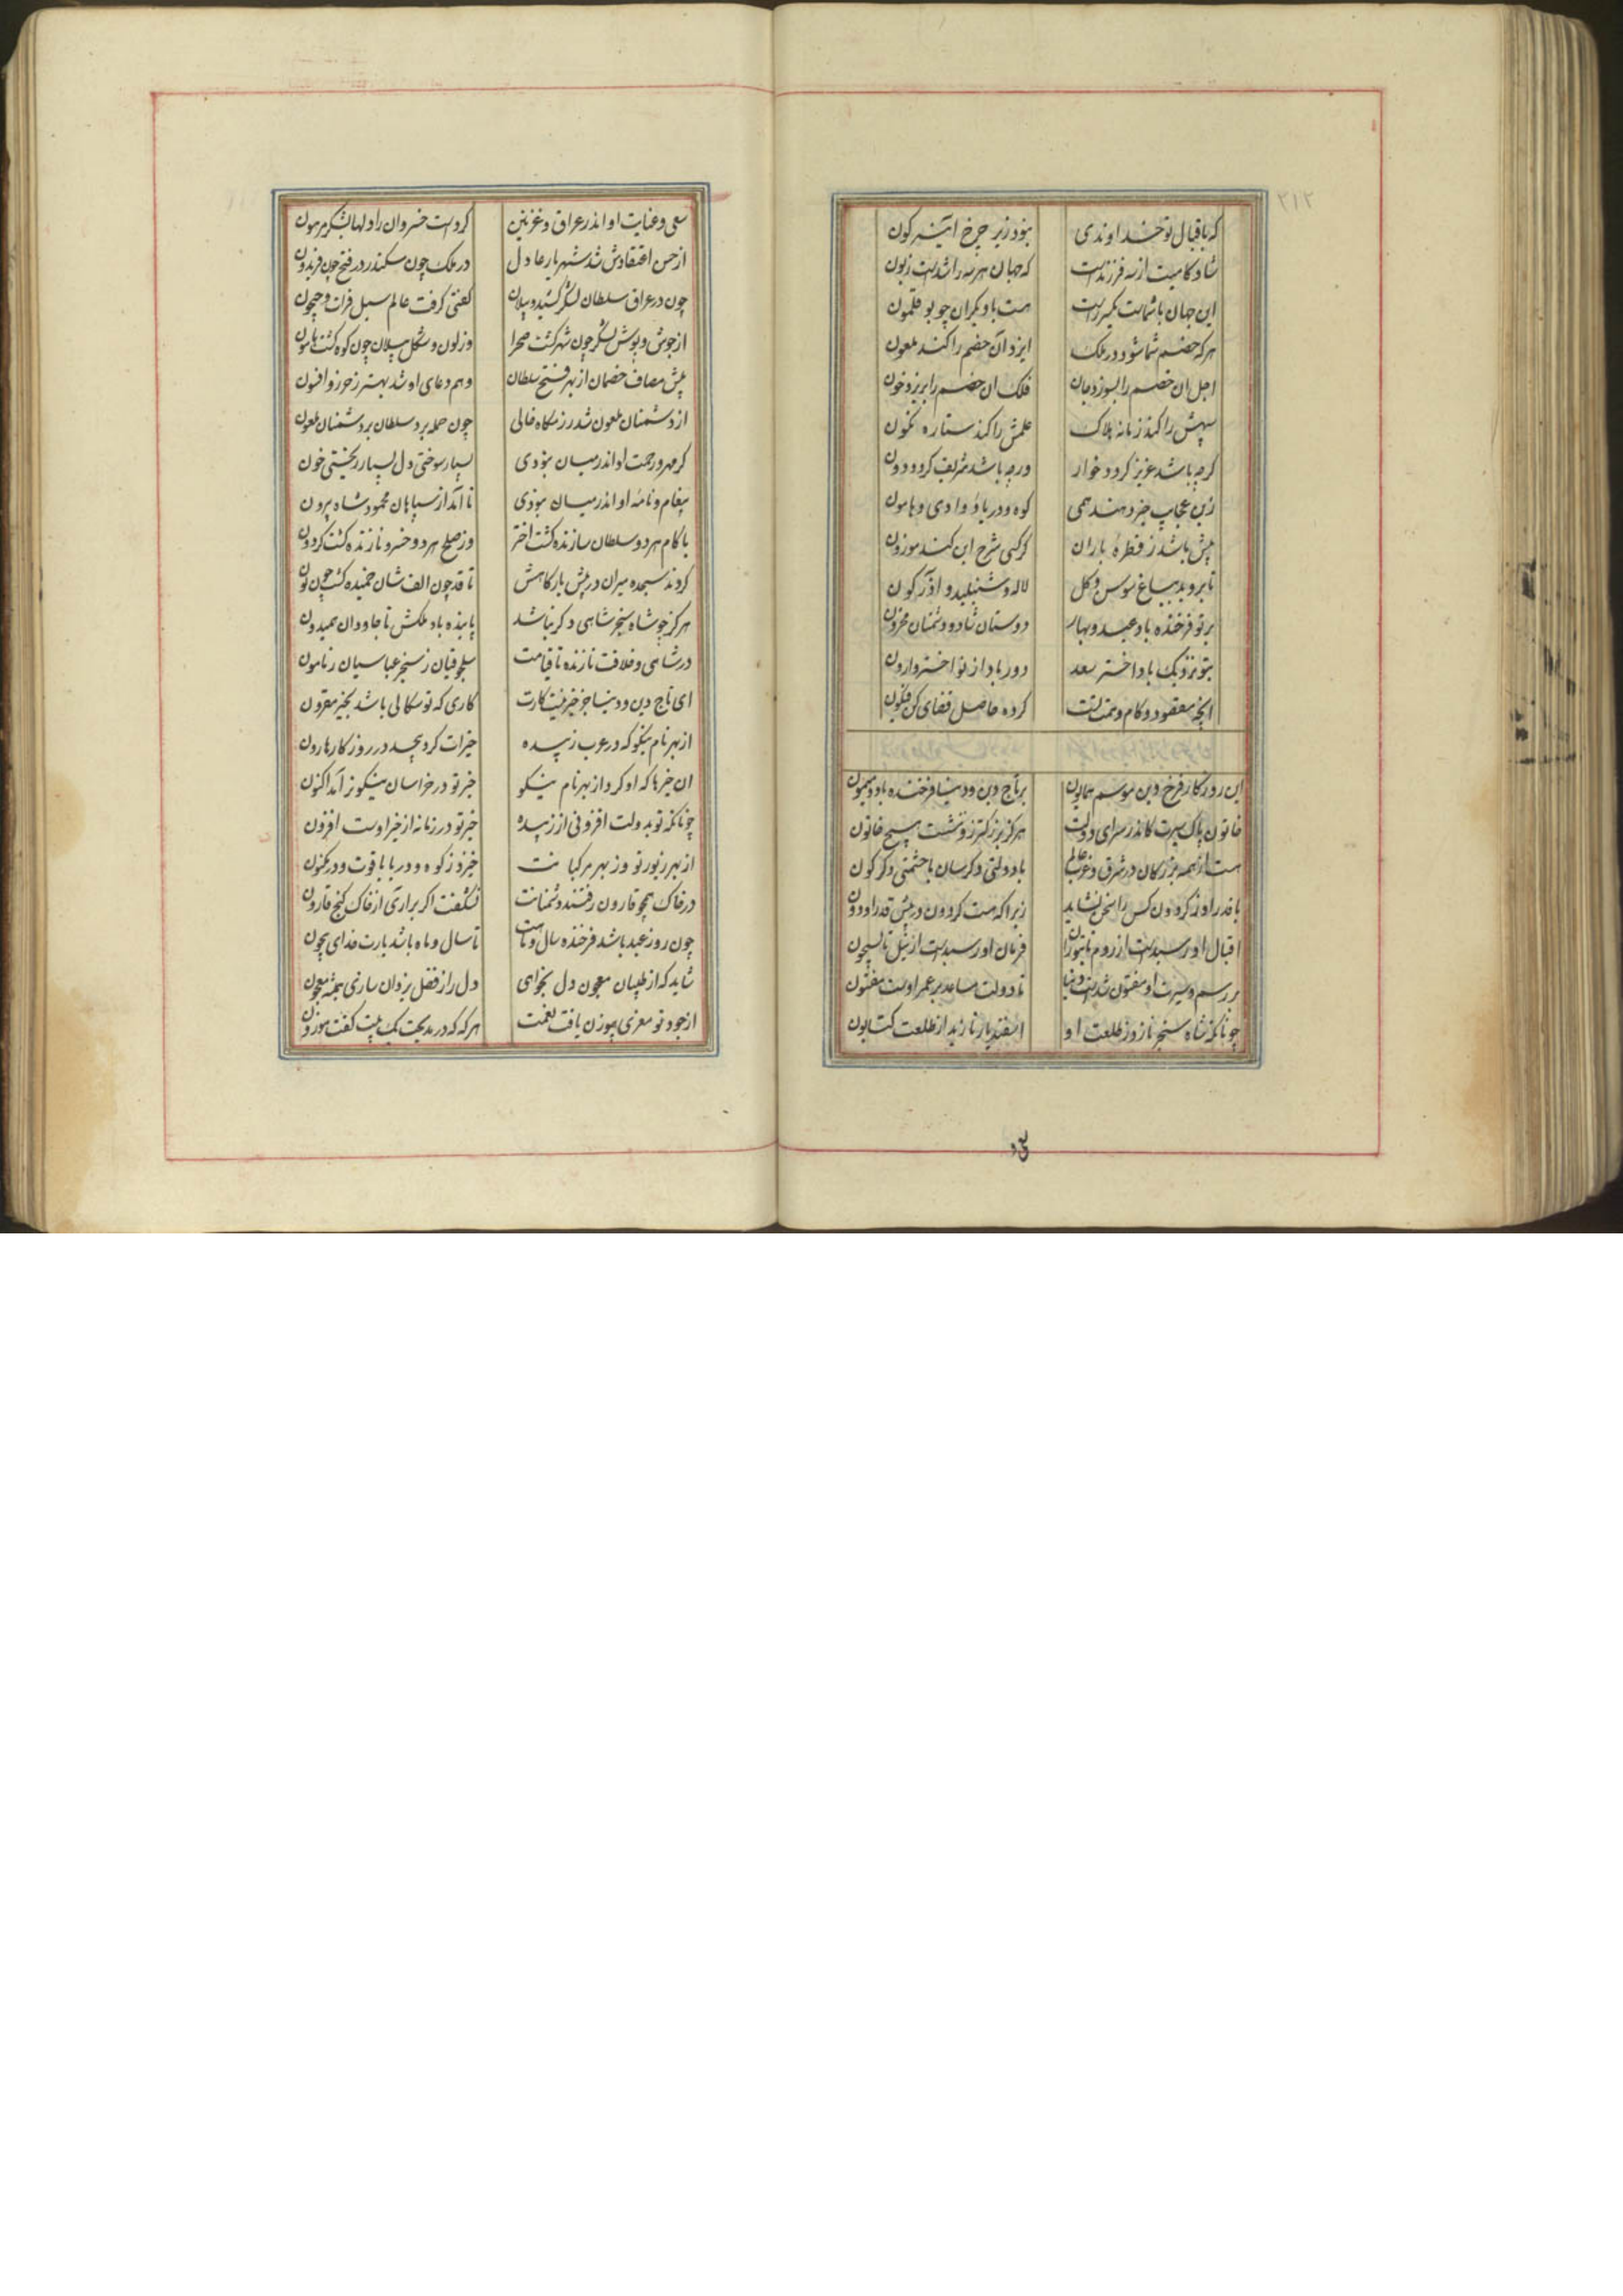 ۲۱۲
که باقبال تو خداوندی نبود زیر چرخ آینه کون
شادکامیت از سه فرزندست که جهان هر سه را شدست زبون
این جهان با شماست یکسر راست هست با دیکران چو بوقلمون
هرکه خصم شما شود در ملک ایزد آن خصم را کند ملعون
اجل ان خصم را بسوزد جان فلک ان خصم را بریزد خون
سپهش را کند زمانه هلاک علمش را کند ستاره نکون
کرچه باشد عزیز کردد خوار ورچه باشد شریف کردد دون
زین عجایب خبر دهند همی کوه و دریا و وادی و هامون
بیش باشد ز قطره باران کر کسی شرح این کند موزون
تا بروید بباغ سوسن و کل لاله و شنبلید و اذرکون
بر تو فرخنده باد عید و بهار دوستان شاد و دشمنان محزون
بتو نزدیک باد اختر سعد دور باد از تو اختر وارون
انچه مقصود و کام و همت تست کرده حاصل قضای کن فیکون
این روزکار فرخ وین موسم همایون بر تاج دین و دنیا فرخنده باد و میمون
خاتون پاک سیرت کاندر سرای دولت هرکز بزرکتر زو ننشست هیچ خاتون
هست از همه بزرکان در شرق و غرب عالم با دولتی دکرسان با حشمتی دکرکون
با قدر او ز کردون کس را سخن نشاید زیرا که هست کردون در پیش قدر او دون
اقبال او رسیدست از روم تا بتوران فرمان او رسیدست از نیل تا بسیحون
بر رسم و سیرت او مفتون شدست دنیا تا دولت مساعد بر عمر اوست مفتون
چونانکه شاه سنجر نازد ز طلعت او اسفندیار نازید از طلعت کتایون
سعی و عنایت او اندر عراق و غزنین کردست خسروان را دلها بشکر مرهون
از حسن اعتقادش شد شهریار عادل در ملک چون سکندر در فتح چون فریدون
چون در عراق سلطان لشکر کشید و پیلان کفتی کرفت عالم سیل فرات و جیحون
از جوش و پوشش لشکر چون شهر کشت صحرا وز لون و شکل پیلان چون کوه کشت هامون
پیش مصاف خصمان از بهر فتح سلطان وهم و دعای او شد بهتر ز حرز و افسون
از دشمنان ملعون شد رزمکاه خالی چون حمله برد سلطان بر دشمنان ملعون
کر مهر و رحمت او اندر میان نبودی بسیار سوختی دل بسیار ریختی خون
پیغام و نامه او اندر میان نبودی تا آمد از سپاهان محمود شاه بیرون
با کام هر دو سلطان سازنده کشت اختر وز صلح هر دو خسرو نازنده کشت کردون
کردند سجده میران در پیش بارکاهش تا قد چون الف شان خمیده کشت چون نون
هرکز چو شاه سنجر شاهی دکر نباشد پاینده باد ملکش تا جاودان همیدون
در شاهی و خلافت نازنده تا قیامت سلجوقیان ز سنجر عباسیان ز مامون
ای تاج دین و دنیا جز خیر نیست کارت کاری که تو سکالی باشد بخیر مقرون
از بهر نام نیکو که در عرب زبیده خیرات کرد بیحد در روزکار هارون
ان خیرها که او کرد از بهر نام نیکو خیر تو در خراسان نیکوتر آمد اکنون
چونانکه تو بدولت افزونی از زبیده خیر تو در زمانه از خیر اوست افزون
از بهر زیور تو وز بهر مرکبانت خیزد ز کوه و دریا یاقوت و در مکنون
در خاک همچو قارون رفتند دشمنانت نشکفت اکر براری از خاک کنج قارون
چون روز عید باشد فرخنده سال و ماهت تا سال و ماه باشد یارت خدای بیچون
شاید که از طبیبان معجون دل نخواهی دل را ز فضل یزدان سازی همیشه معجون
از جود تو معزی بیوزن یافت نعمت هر که که در مدیحت یک بیت کفت موزون
سعی